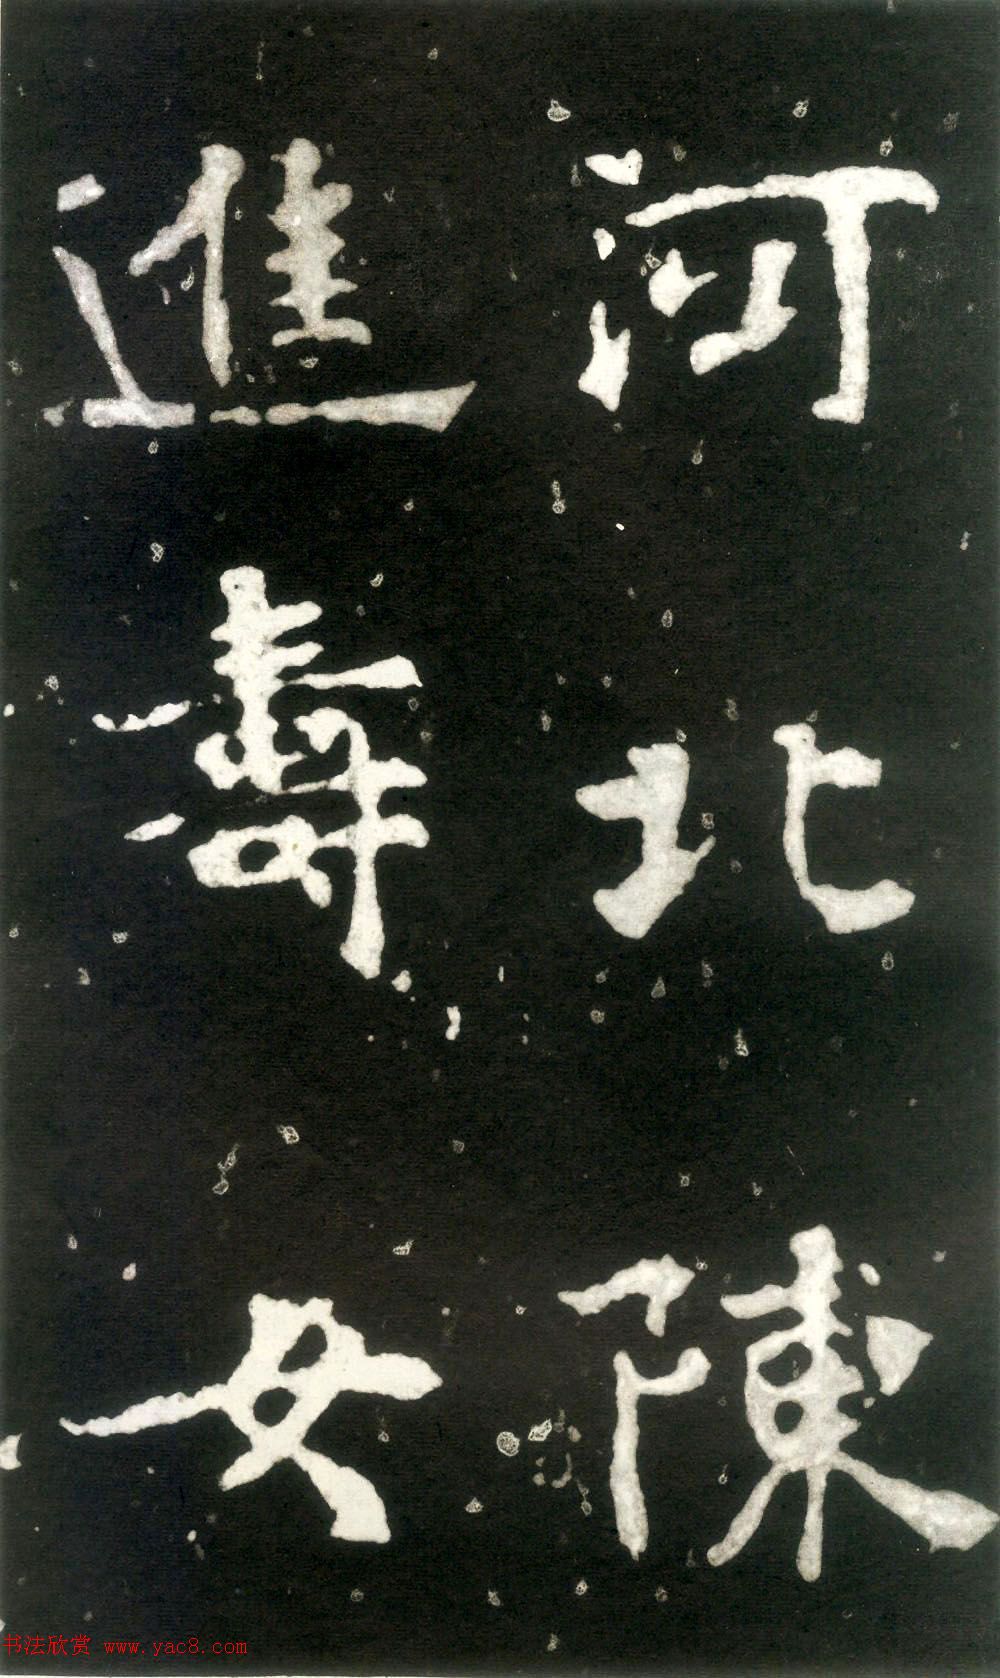 河北陳
進壽女
书法欣赏 www.yac8.com